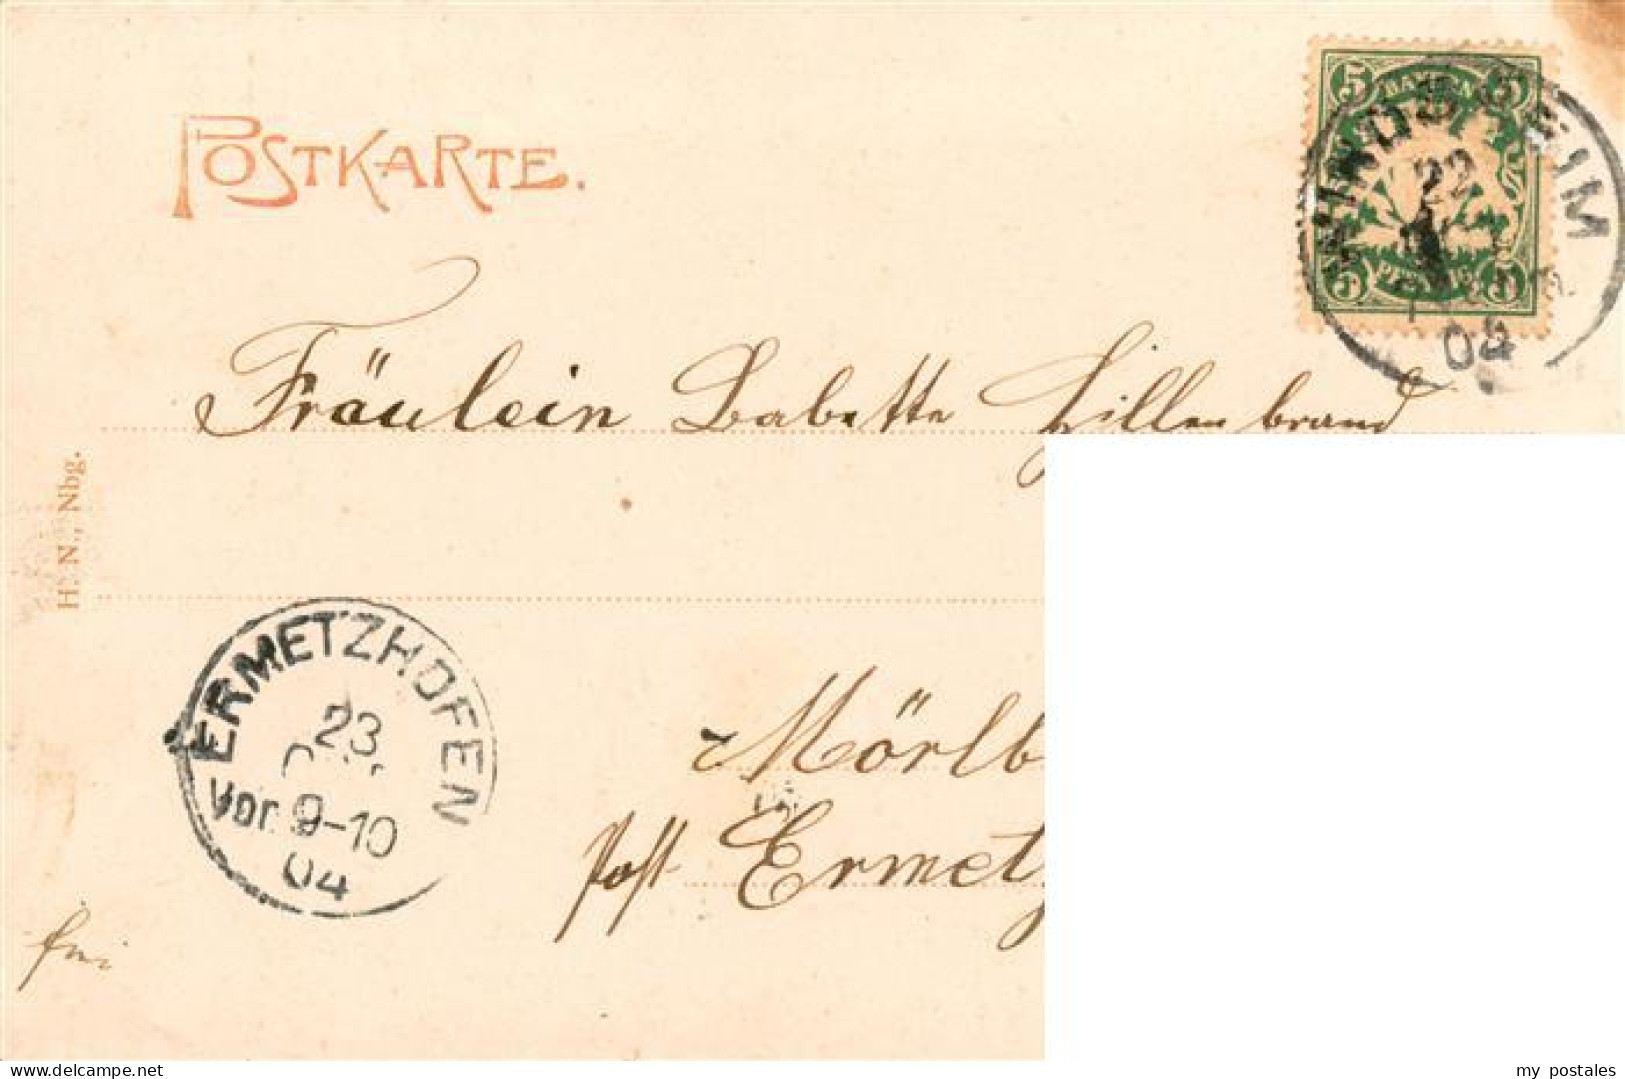 POSTKARTE.
5 BAYERN 5
5 PFENNIG 5
WINDSHEIM
22
04
Fräulein Babette Hillenbrand
H. N., Nbg.
ERMETZHOFEN
23
Vor. 9-10
04
Mörlb
Post Ermetz
frei
my postales